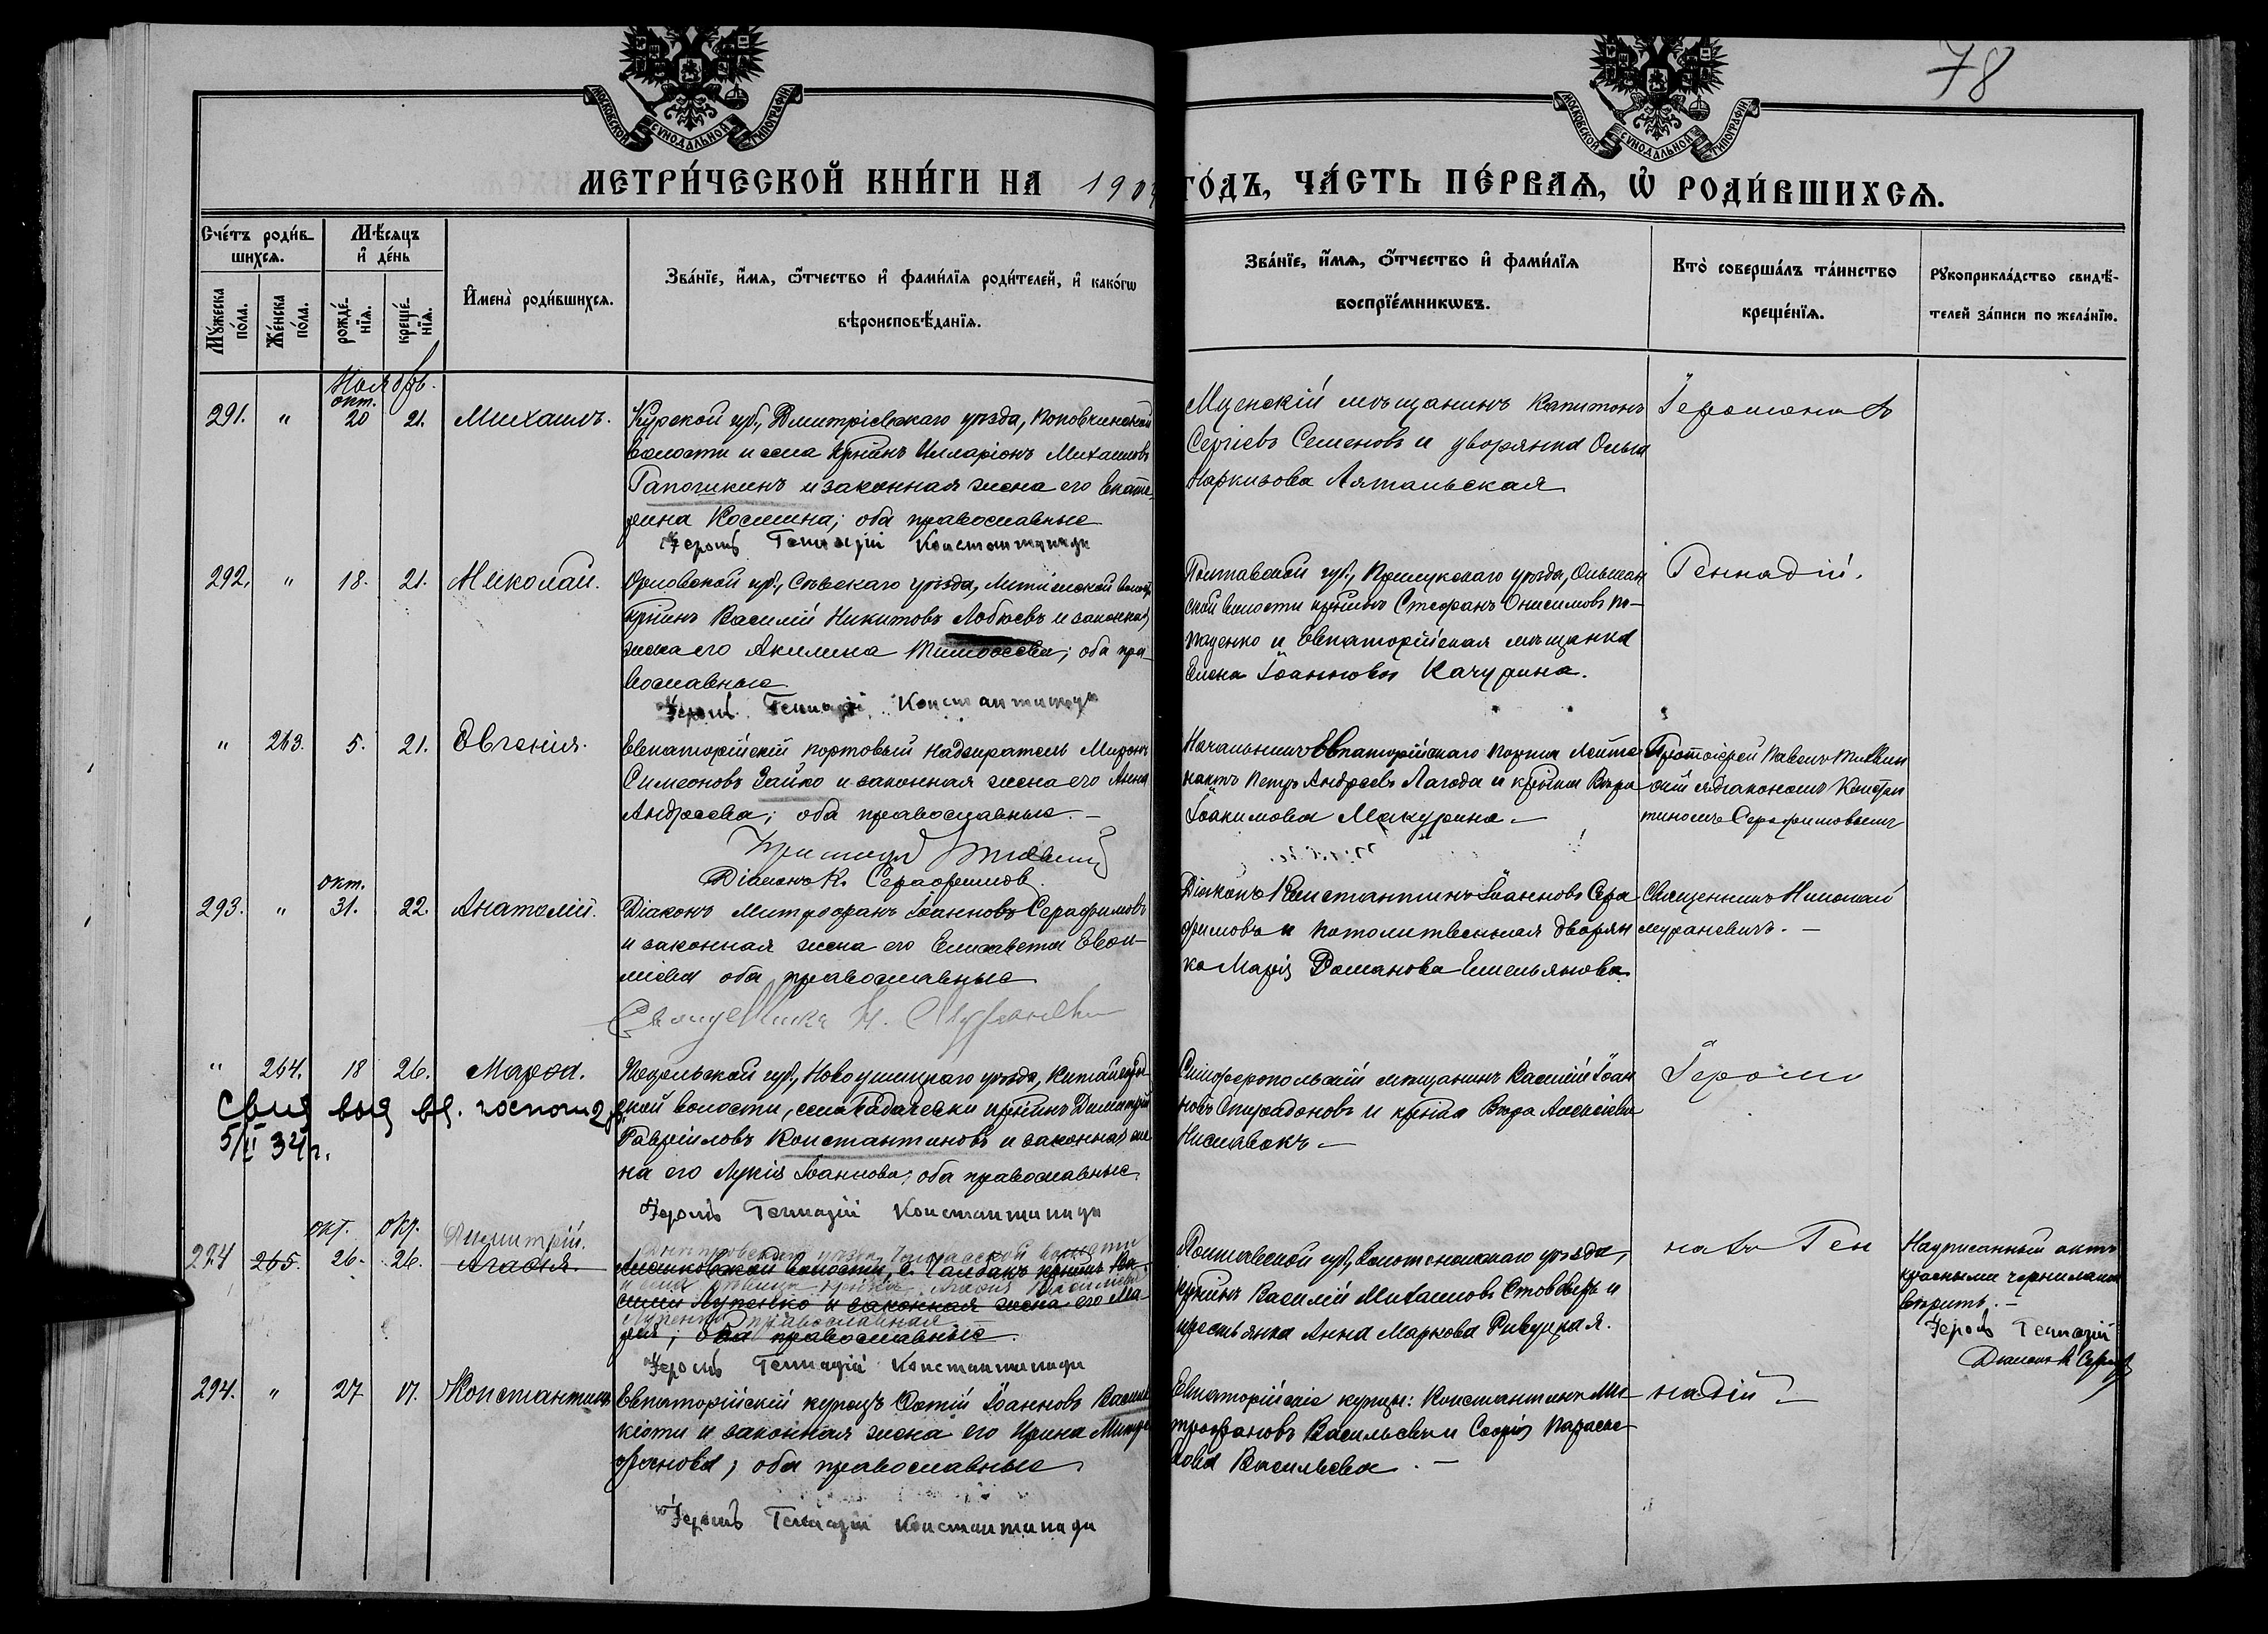 78
МОСКОВСКОЙ СѴНОДАЛЬНОЙ ТИПОГРАФІИ
МОСКОВСКОЙ СѴНОДАЛЬНОЙ ТИПОГРАФІИ
МЕТРИ́ЧЕСКОЙ КНИ́ГИ НА 190
ГО́ДЪ, ЧА́СТЬ ПЕ́РВАѦ, Ѡ҆ РОДИ́ВШИХСѦ.
Сче́тъ роди́в-
шихсѧ.
Мꙋ́жеска по́ла.
Же́нска по́ла.
Мѣ́сѧцъ
и҆ де́нь
рожде́-
нїѧ.
креще́-
нїѧ.
И҆мена̀ роди́вшихсѧ.
Зва́нїе, и҆́мѧ, ѻ҆́тчество и҆ фами́лїѧ роди́телей, и҆ како́гѡ
вѣроисповѣ́данїѧ.
Зва́нїе, и҆́мѧ, ѻ҆́тчество и҆ фами́лїѧ
воспрїе́мникѡвъ.
Кто̀ соверша́лъ та́инство
креще́нїѧ.
Рꙋкоприкла́дство свидѣ́-
телей за́писи по жела́нїю.
Ноябрь.
окт.
291. " 20 21. Михаилъ.
Курской губ., Дмитріевскаго уѣзда, Поповкинской
волости и села крнинъ Илларіонъ Михаиловъ
Гапошкинъ и законная жена его Екате-
рина Космина; оба православные
Іером Геннадій Константиниди
Мценскій мѣщанинъ Капитонъ
Сергіевъ Семеновъ и дворянка Ольга
Наркизова
Іеромонахъ
292. " 18. 21. Николай.
Орловской губ., Сѣвскаго уѣзда, волости
крнинъ Василій Никитовъ Лобоевъ и законная
жена его Акилина Тимоѳеева; оба пра-
вославные
Іером. Геннадій Константиниди
Полтавской губ., Прилукскаго уѣзда, Ольшан
ской волости крнинъ Стефанъ Онисимовъ По-
паденко и Евпаторійская мѣщанка
Елена Іоаннова Качурина.
Геннадій.
" 263. 5. 21. Евгенія.
Евпаторійскій портовый надзиратель Миронъ
Симеоновъ Зайко и законная жена его Анна
Андреева; оба православные. —
Діаконъ К. Серафимов
Начальникъ Евпаторійскаго порта Лейте
нантъ Петръ Андреевъ Лагода и крнка Вѣра
Іоакимова Макурина —
Протоіерей Павелъ
съ діакономъ Констан
тиномъ Серафимовымъ
окт.
293. " 31. 22. Анатолій.
Діаконъ Митрофанъ Іоанновъ Серафимовъ
и законная жена его Елисавета Евѳи-
міева оба православные
Священникъ Н.
Діаконъ Константинъ Іоанновъ Сера
фимовъ и потомственная дворян
ка Марія Романова Емельянова.
Священникъ Николай
Мурановичъ. —
" 264. 18 26. Марѳа.
5/II 34г.
Подольской губ., Новоушицкаго уѣзда, Китайгород-
ской волости, села крнинъ Димитрій
Гавріиловъ Константиновъ и законная же
на его Лукія Іоаннова; оба православные
Іером Геннадій Константиниди
Симферопольскій мѣщанинъ Василій Іоан
новъ Спиридоновъ и крнка Вѣра Алексіева
—
Іером
окт. окт. Димитрій.
274 265. 26. 26. Агафія.
волости, крнинъ Ва-
и законная жена его Ма-
православная
рія; оба православные.
Іером Геннадій Константиниди
Полтавской губ., Золотоношскаго уѣзда,
крнинъ Василій Михаиловъ и
крестьянка Анна Маркова
нахъ Ген
Надписанный актъ
красными чернилами
вѣрить. —
Іером Геннадій
Діаконъ К.
294. " 27 17. Константинъ
Евпаторійскій купецъ Фотій Іоанновъ
и законная жена его Ирина Митро
фанова; оба православные
Іером Геннадій Константиниди
Евпаторійскіе купцы: Константинъ Ми-
трофановъ Васильевъ и Софія
Васильева. —
надій —